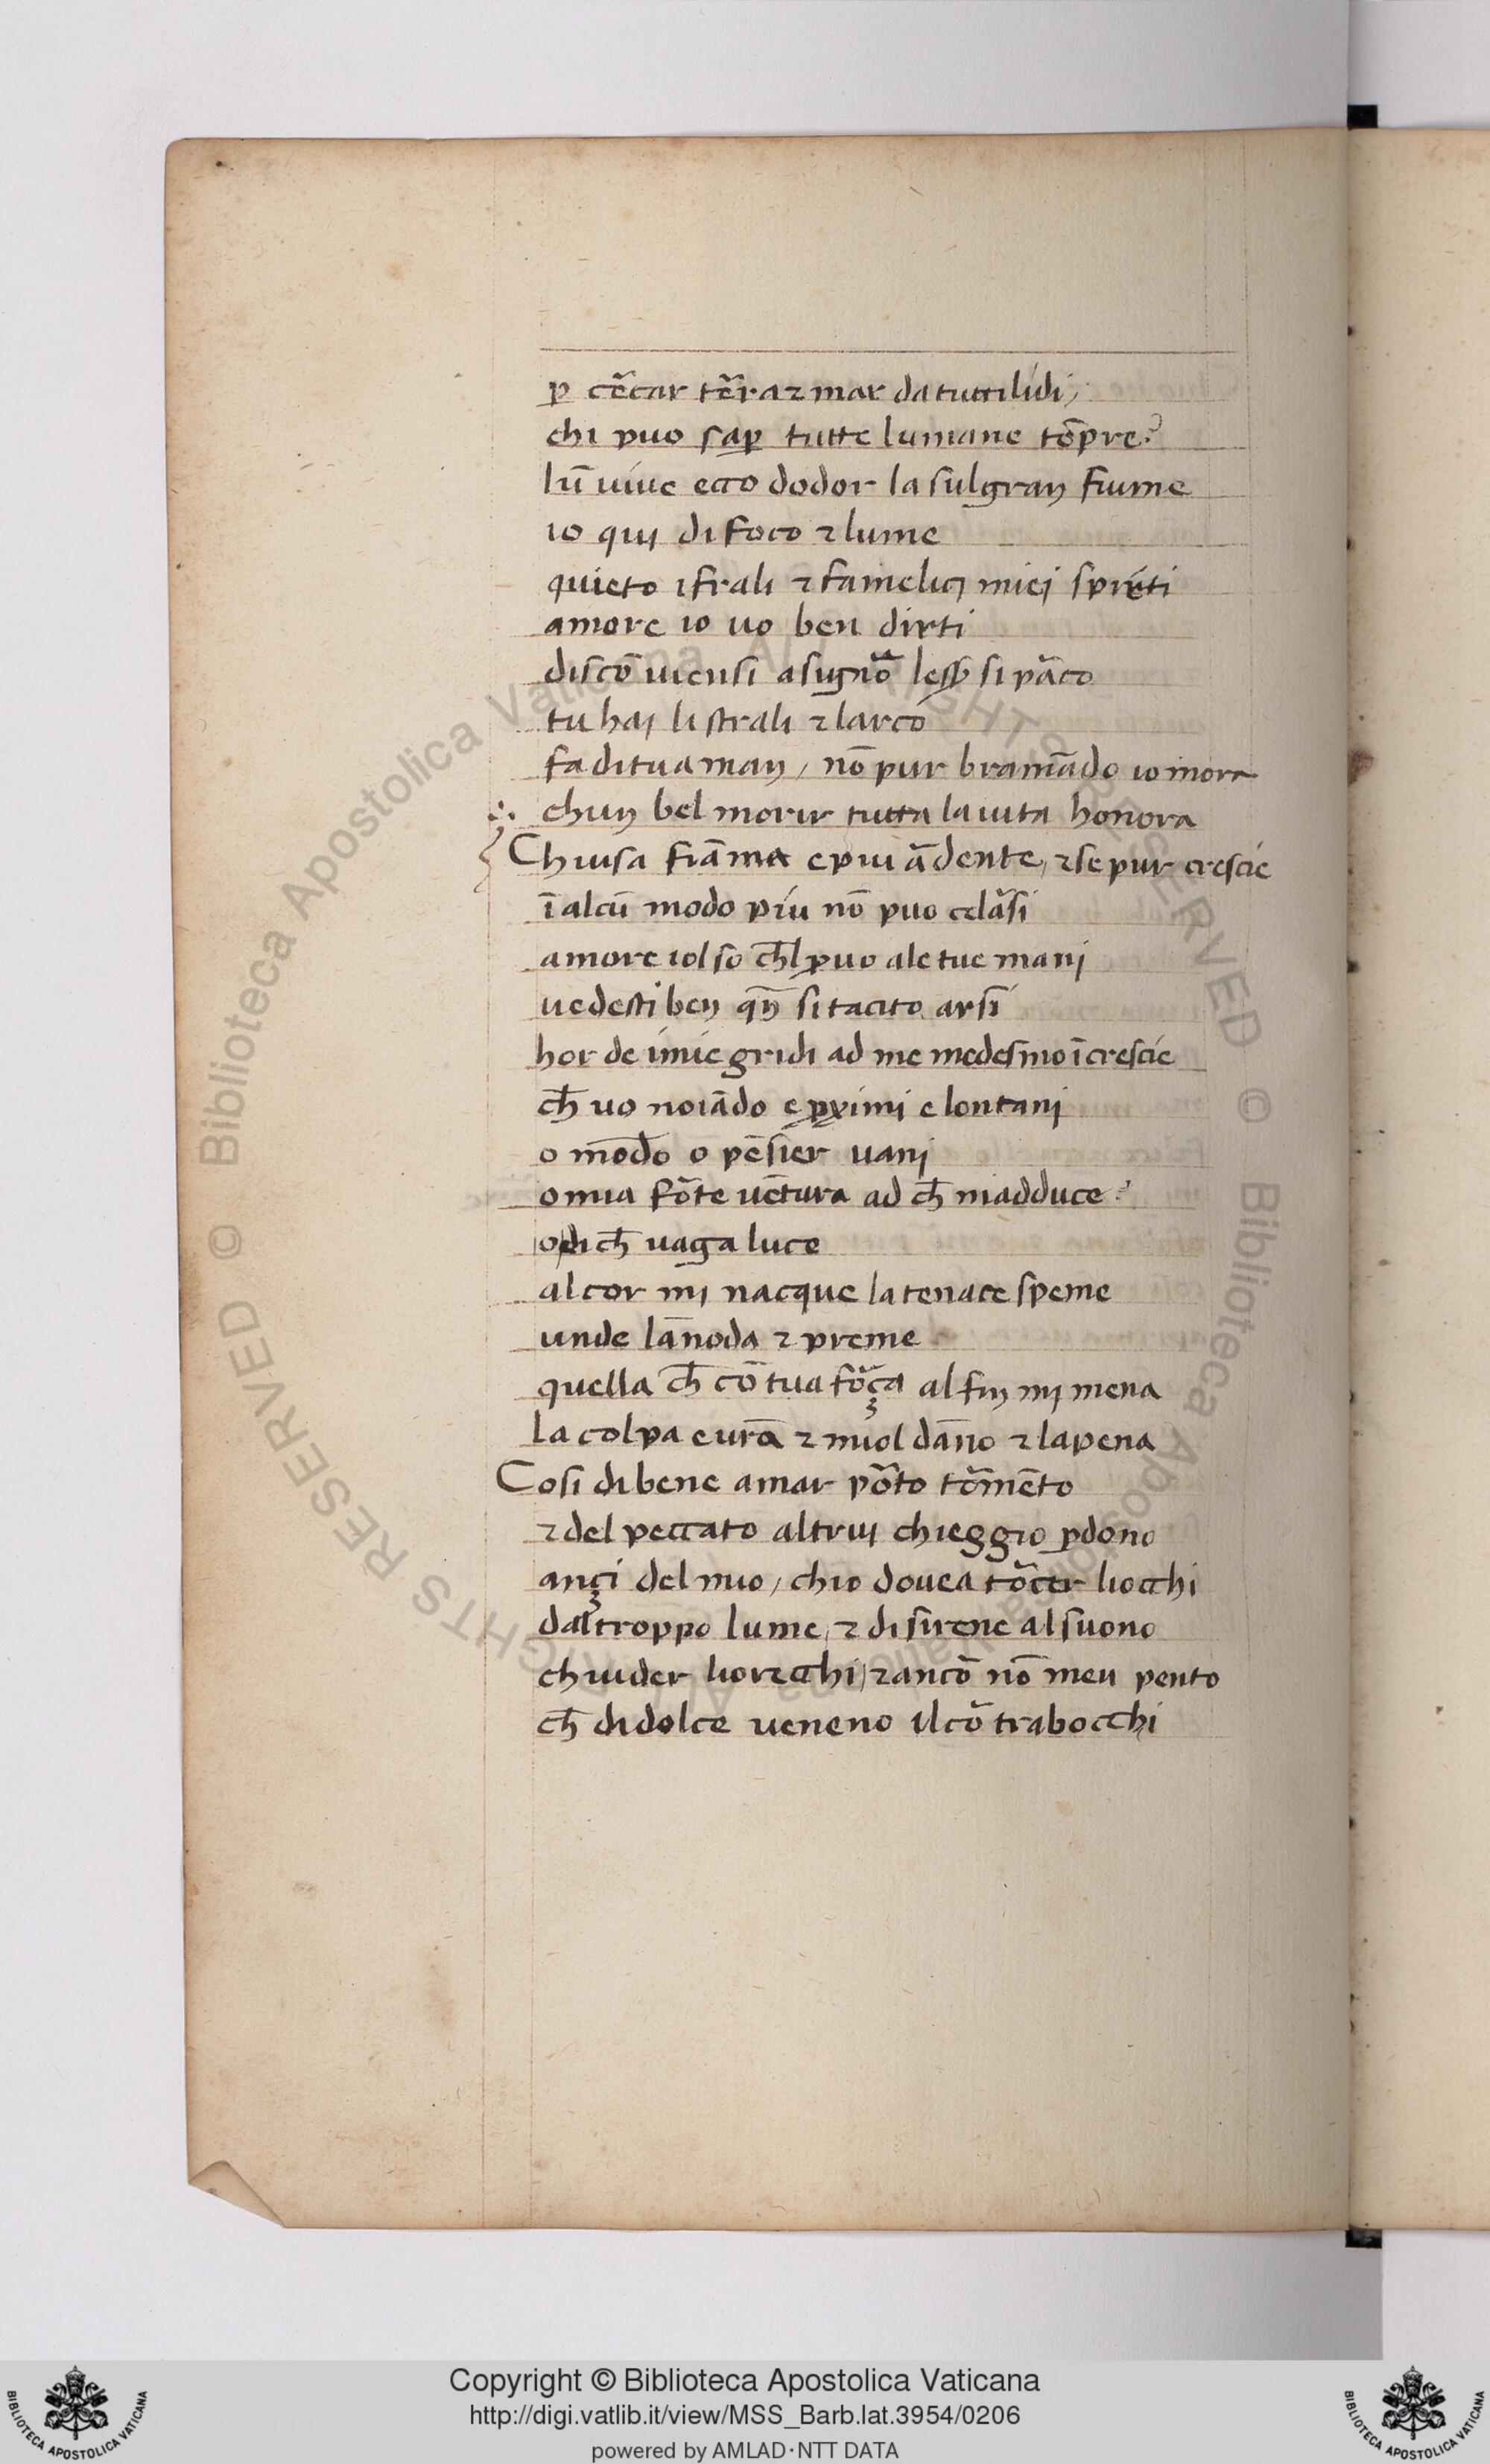 ꝑ cẽcar tẽra ⁊ mar da tutti lidi /
chi puo saꝑ tutte lumane tẽpre?
lũ uiue ecco dodor la sul gran fiume
io qui di foco ⁊ lume
quieto i frali ⁊ famelici miei spirti
amore io uo ben dirti
discõuiensi a signõ
tu hai li strali ⁊ larco
fa di tua man / nõ pur bramãdo io mora
chun bel morir tutta la uita honora
Chiusa fiãma e piu ãdente / ⁊ se pur crescie
ĩ alcũ modo piu nõ puo celãsi
amore iol so ch̄l ꝓuo a le tue mani
uedesti ben qñ si tacito arsi
hor de i mie gridi ad me medesmo ĩcrescie
ch̄ uo noiãdo e ꝓximi e lontani
o mõdo o pẽsier uani
o mia fõte uẽtura ad ch̄ madduce?
o di ch̄ uaga luce
al cor mi nacque la tenace speme
unde lãnoda ⁊ preme
quella ch̄ cõ tua fõça al fin mi mena
la colpa e urã ⁊ miol dãno ⁊ la pena
Cosi di bene amar põto tõmẽto
⁊ del peccato altrui chieggio ꝑdono
ançi del mio / chio douea tõcer liocchi
dal troppo lume / ⁊ di sirene al suono
chiuder liorecchi / ⁊ ancõ nõ men pento
ch̄ di dolce ueneno il cõ trabocchi
Copyright © Biblioteca Apostolica Vaticana
http://digi.vatlib.it/view/MSS_Barb.lat.3954/0206
powered by AMLAD·NTT DATA